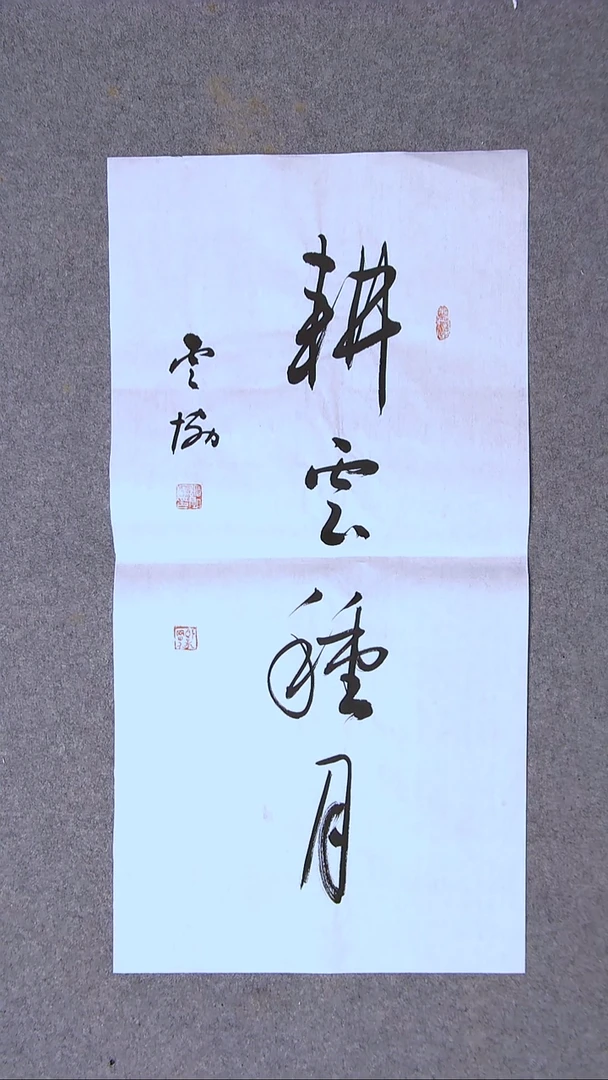 耕雲種月
雲